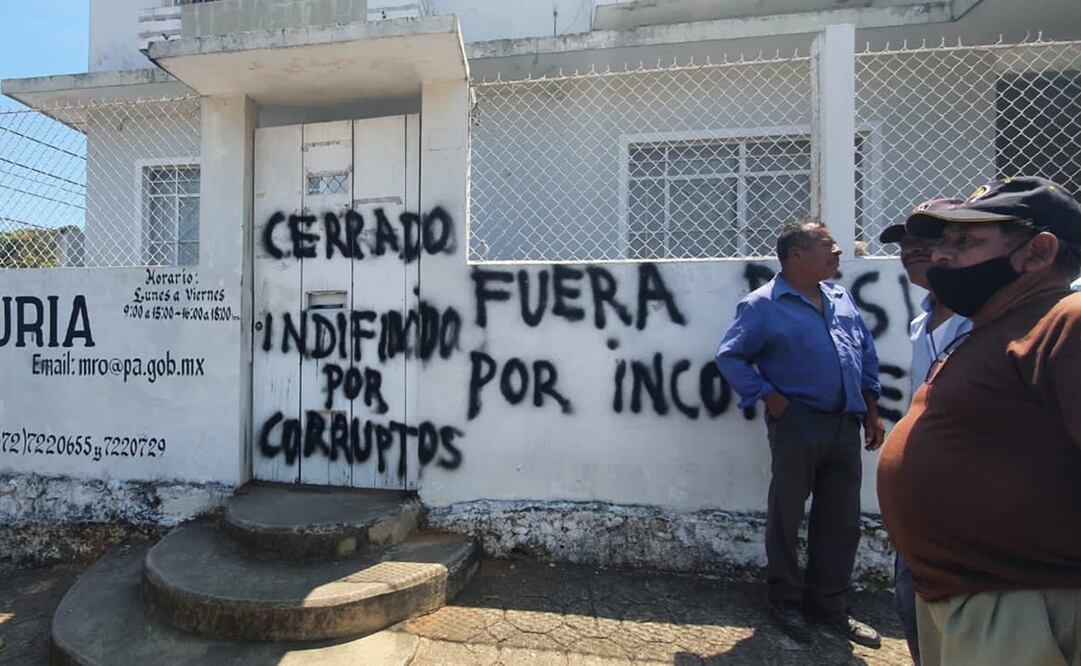 URIA
Email: mro@pa.gob.mx
72)7220655 y 7220729
Horario:
Lunes a Viernes
9:00 a 15:00-16:00 a 18:00 hrs.
CERRADO
INDIFINIDO
POR
CORRUPTOS
FUERA
POR